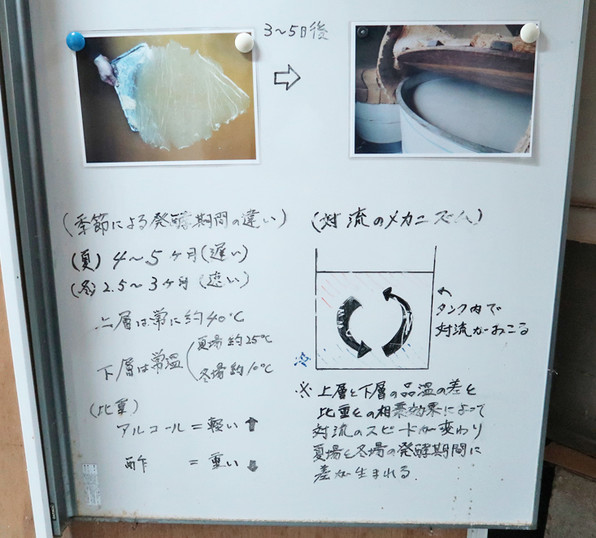 3〜5日後
(季節による発酵期間の違い)
(夏) 4〜5ヶ月(遅い)
(冬) 2.5〜3ヶ月(速い)
上層は常に約40℃
下層は常温
夏場約25℃
冬場約10℃
(比重)
アルコール=軽い↑
酢=重い↓
(対流のメカニズム)
タンク内で
対流がおこる
※上層と下層の品温の差と
比重との相乗効果によって
対流のスピードが変わり
夏場と冬場の発酵期間に
差が生まれる.